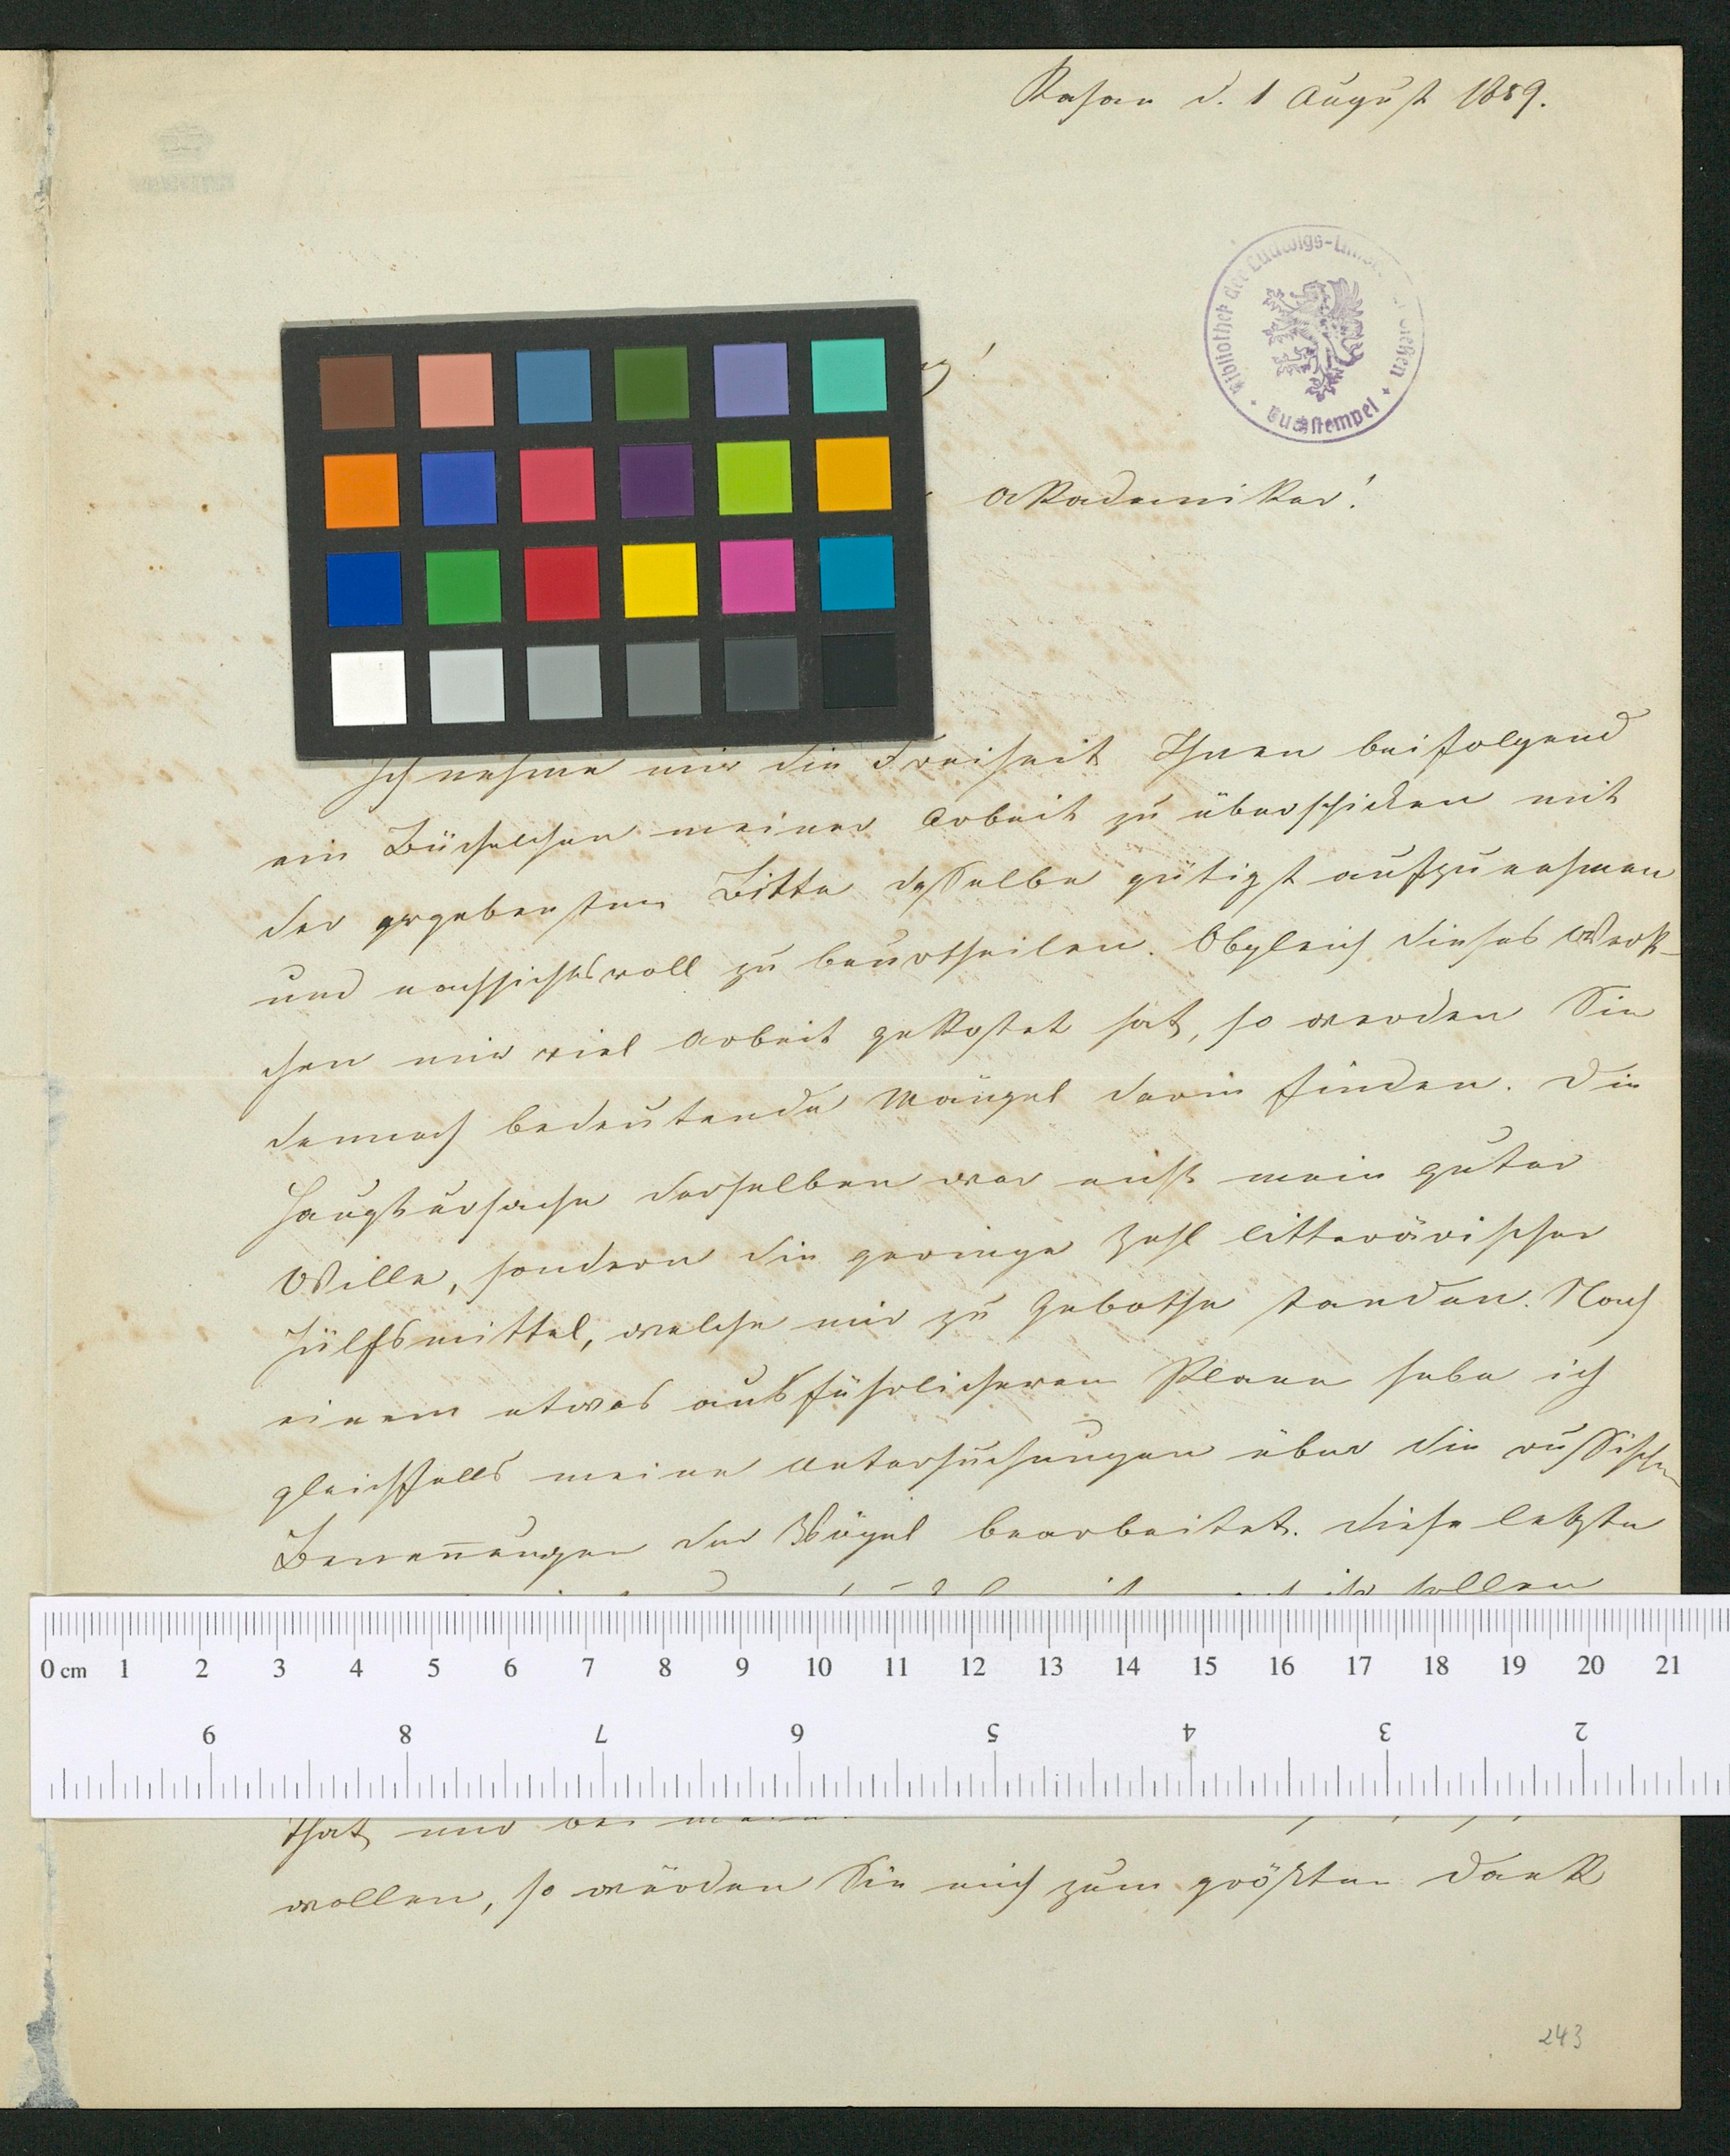 Kasan d. 1 August 1859.
Bibliothek der Ludwigs-
Buchstempel
Akademiker!
Ich nehme mir die Freiheit Ihnen beifolgend
ein Büchelchen meiner Arbeit zu überschicken mit
der ergebensten Bitte dasselbe gütigst aufzunehmen
und nachsichtsvoll zu beurtheilen. Obgleich dieses Werk-
chen mir viel Arbeit gekostet hat, so werden Sie
dennoch bedeutende Mängel darin finden. Die
Hauptursache derselben war nicht mein guter
Wille, sondern die geringe Zahl litterärischer
Hülfsmittel, welche mir zu Gebothe standen. Nach
einem etwas ausführlicheren Plane habe ich
gleichfalls meine Untersuchungen über die russischen
Benennungen der Vögel bearbeitet. Diese letzte
sollen
0 cm 1 2 3 4 5 6 7 8 9 10 11 12 13 14 15 16 17 18 19 20 21
9 8 7 6 5 4 3 2
That und
wollen, so würden Sie mich zum größten Dank
243